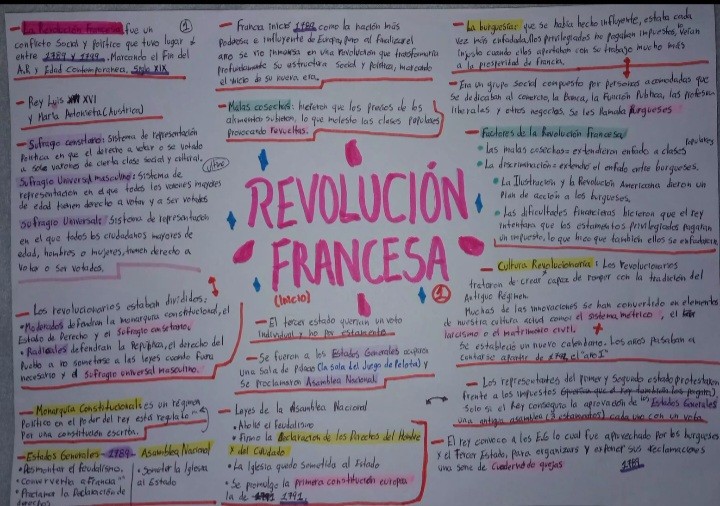 - La Revolución Francesa fue un
conflicto social y político que tuvo lugar
entre 1789 y 1799. Marcando el fin del
A.R y Edad Contemporánea. Siglo XIX
1
- Rey Luis XVI
y María Antonieta (Austria)
- Sufragio censitario: Sistema de representación
Política en que el derecho a votar o se votado
a solo varones de cierta clase social y cultural.
Sufragio Universal masculino: Sistema de
representación en el que todos los varones mayores
de edad tienen derecho a votan y a ser votados
Sufragio Universal: Sistema de representación
en el que todos los ciudadanos mayores de
edad, hombres o mujeres, tienen derecho a
Votar o ser votados.
- Los revolucionarios estaban divididos:
• Moderados defendían la monarquía constitucional, el
Estado de Derecho y el Sufragio censitario.
• Radicales defendían la República, el derecho del
Pueblo a no someterse a las leyes cuando fuera
necesario y el sufragio universal masculino.
- Monarquía Constitucional es un régimen
Político en el poder del rey está regulado
Por una constitución escrita.
- Estados Generales 1789
• Desmontar el feudalismo.
• convertirlo a Francia
• Proclama la Declaración de
derechos
- Asamblea Nacional
• Someter la Iglesia
al Estado
- Francia inició 1789 como la nación más
Poderosa e influyente de Europa, pero al finalizar el
año se vio inmersa en una Revolución que transformaría
profundamente su estructura social y política, marcando
el inicio de su nueva era.
- Malas cosechas: hicieron que los precios de los
alimentos subieron, lo que molesto las clases populares
provocando revueltas.
REVOLUCIÓN
FRANCESA
(INICIO)
1
- El tercer estado querían un voto
individual y no por estamento
- Se fueron a los Estados Generales ocuparon
una sala de palacio (la sala del Juego de Pelota) y
se proclamaron Asamblea Nacional.
- Leyes de la Asamblea Nacional
• Abolió el feudalismo
• Firmo la Declaración de los Derechos del Hombre
y del Ciudadano
• La Iglesia quedo sometida al Estado
• Se promulgo la primera constitución europea
la de 1791.
- La burguesía: que se había hecho influyente, estaba cada
vez más enfadada. Los privilegiados no pagaban impuestos, veían
injusto cuando ellos aportaban con su trabajo mucho más
a la prosperidad de francia.
- Era un grupo social compuesto por personas acomodadas que
se dedicaban al comercio, la banca, la Función Pública, las profesiones
liberales y otros negocios. Se les llamaba burgueses
- Factores de la Revolución Francesa
• Las malas cosechas = extendieron enfado a clases populares
• La discriminación = extendió el enfado entre burgueses.
• La Ilustración y la Revolución Americana dieron un
Plan de acción a los burgueses.
• Las dificultades financieras hicieron que el rey
intentara que los estamentos privilegiados pagaran
un impuesto, lo que hizo que también ellos se enfadaran
- Cultura Revolucionaria: Los revolucionarios
trataron de crear capaz de romper con la tradición del
Antiguo Régimen.
Muchas de las innovaciones se han convertido en elementos
de nuestra cultura actual como el sistema métrico, el
laicismo o el matrimonio civil.
Se estableció un nuevo calendario. Los años pasaban a
contarse apartir de 1792 el "año I"
- Los representantes del primer y Segundo estado protestaron
frente a los impuestos
Solo si el Rey conseguía la aprovación de los Estados Generales
una antigua asamblea (3 estamentos) cada uno con un voto.
- El rey convoco a los EG lo cual fue aprovechado por los burgueses
y el Tercer Estado, para organizarse y exponer sus reclamaciones
una serie de Cuadernos de quejas 1789